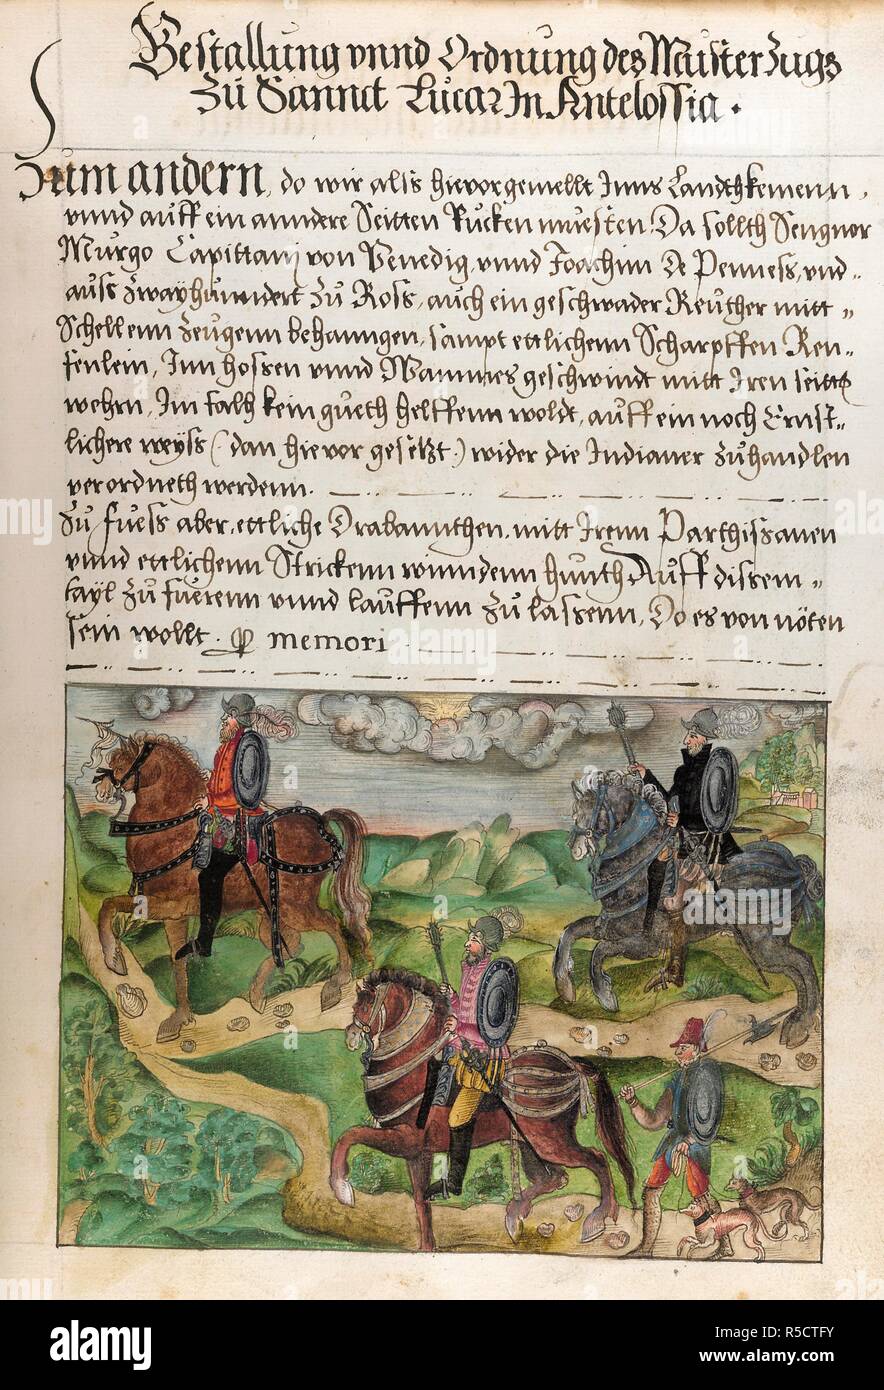 Bestallung unnd Ordnung des Musterzugs
Zu Sannct Lucar In Antelossia.
Zum andern, do wir alls hievorgemellt Inns Landthkemenn,
unnd auff ein anndere Seitten Rucken muesten. Da sollth Sengnor
Murgo Capittanj von Venedig, unnd Joachim De Penness, und„
auss Zwayhundert Zu Ross, auch ein geschwader Reuther mitt„
Schellenn Zeugenn behanngen, sampt ettlichenn Scharpffen Ren„
fenlein, Inn hossen unnd Wammes geschwindt mitt Iren seitte
wehrn, Im falh kein gueth helffenn woldt, auff ein noch Ernst„
lichere weyss (dan hievor gesetzt.) wider die Indianer Zuhandlen
verordneth werdenn.
Zu fuess aber, ettliche Drabannthen, mitt Irenn Parthissanen
unnd ettlichenn Strickenn winndenn hunth Auff dissem„
tayl Zu fuerenn unnd lauffenn Zu lassenn, Do es von nöten
sein wollt. memori
alamy
Image ID: R5CTFY
www.alamy.com